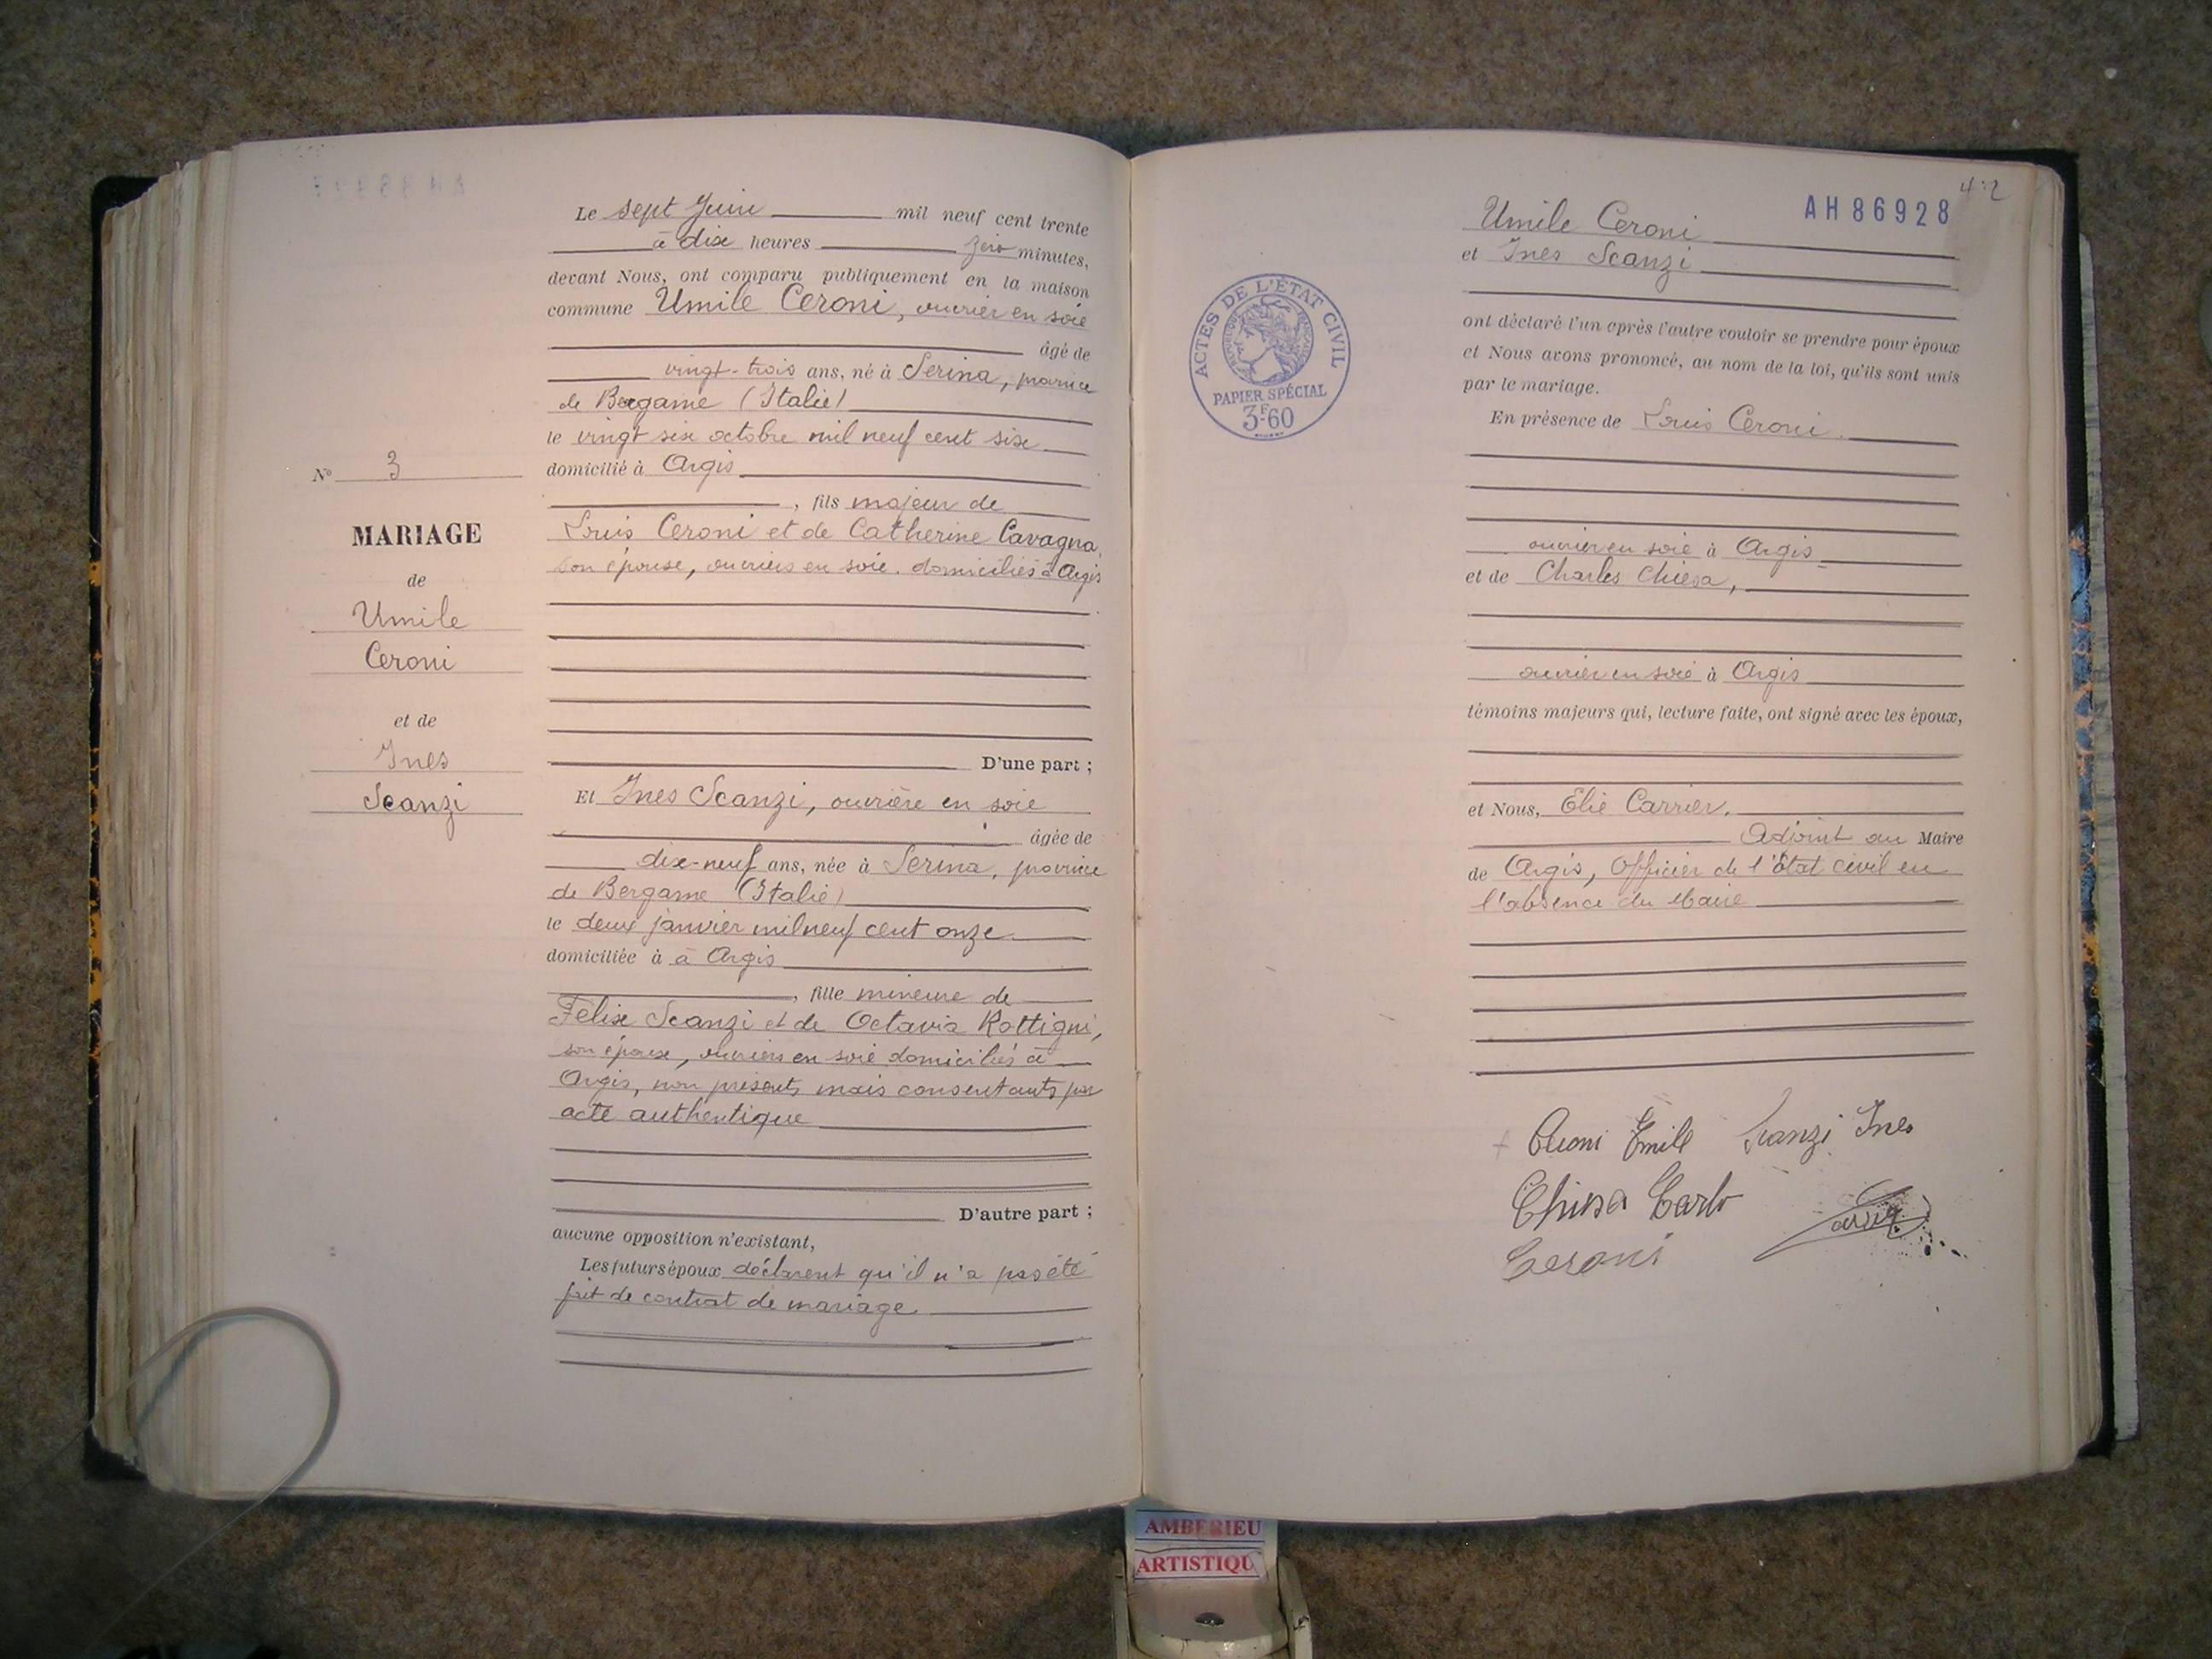 Le sept Juin mil neuf cent trente
à dix heures zéro minutes,
devant Nous, ont comparu publiquement en la maison
commune Umile Ceroni, ouvrier en soie
âgé de
vingt-trois ans, né à Serina, province
de Bergame (Italie)
le vingt six octobre mil neuf cent six
domicilié à Argis
, fils majeur de
Louis Ceroni et de Catherine Cavagna,
son épouse, ouvriers en soie domiciliés à Argis
D'une part ;
Et Ines Scanzi, ouvrière en soie
âgée de
dix-neuf ans, née à Serina, province
de Bergame (Italie)
le deux janvier mil neuf cent onze
domiciliée à à Argis
, fille mineure de
Felix Scanzi et de Octavia Rottigni,
son épouse, ouvriers en soie domiciliés à
Argis, non présents mais consentants par
acte authentique
D'autre part ;
aucune opposition n'existant,
Les futurs époux déclarent qu'il n'a pas été
fait de contrat de mariage
N° 3
MARIAGE
de
Umile
Ceroni
et de
Ines
Scanzi
4
AH 86928
ACTES DE L'ÉTAT CIVIL
RÉPUBLIQUE FRANÇAISE
PAPIER SPÉCIAL
3F.60
Umile Ceroni
et Ines Scanzi
ont déclaré l'un après l'autre vouloir se prendre pour époux
et Nous avons prononcé, au nom de la loi, qu'ils sont unis
par le mariage.
En présence de Louis Ceroni.
ouvrier en soie à Argis
et de Charles Chiesa,
ouvrier en soie à Argis
témoins majeurs qui, lecture faite, ont signé avec les époux,
et Nous, Elie Carrier,
Adjoint au Maire
de Argis, Officier de l'état civil en
l'absence du Maire
Ceroni Emile Scanzi Ines
Chiesa Carlo
Ceroni
AMBERIEU
ARTISTIQU